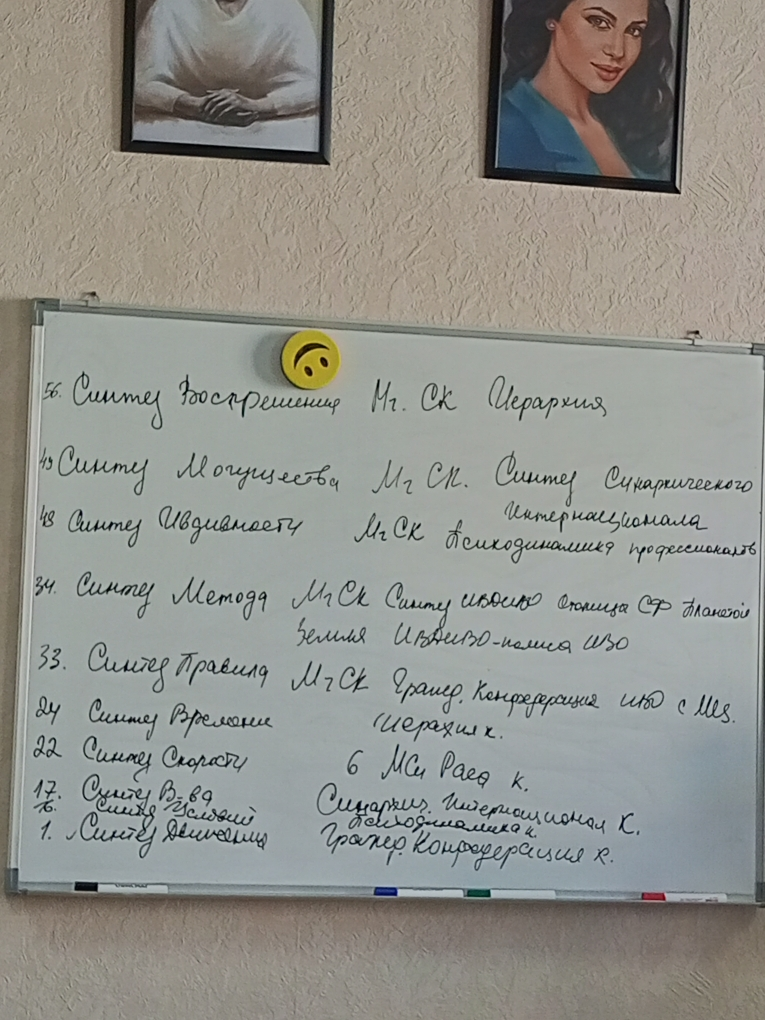 56. Синтез Воскрешения Мг. СК Иерархия
49 Синтез Могущества Мг СК. Синтез Синархического
Интернационала
48 Синтез Ивдивности Мг СК Психодинамика профессионалов
34. Синтез Метода Мг СК Синтез ИВДИВО столица СФ Планетой
Земля ИВДИВО-полиса ИВО
33. Синтез Правила Мг СК Гражд. Конфедерация ИВО с
24 Синтез Времени Иерархия к.
22 Синтез Скорости 6 Раса к.
17. Синтез В-ва Синархич. Интернационал К.
16. Синтез Условий Психодинамика к.
1. Синтез Движения Гражд. Конфедерация к.